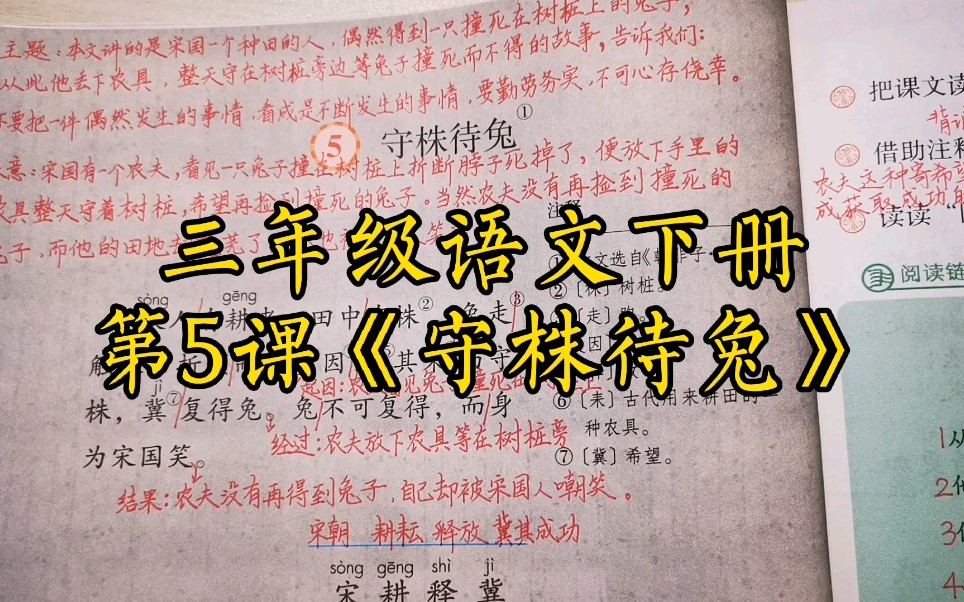 主题：本文讲的是宋国一个种田的人，偶然得到一只撞死在树桩上的兔子，
从此他丢下农具，整天守在树桩旁边等兔子撞死而不得的故事，告诉我们：
不要把一件偶然发生的事情，看成是不断发生的事情，要勤劳务实，不可心存侥幸。
5 守株待兔①
大意：宋国有一个农夫，看见一只兔子撞在树桩上折断脖子死掉了，便放下手里的
农具整天守着树桩，希望再捡到撞死的兔子。当然农夫没有再捡到撞死的
兔子，而他的田地
注释
三年级语文下册
第5课《守株待兔》
sòng gēng
人 耕 田中 株② 兔走③
因 其 守
株，冀⑦复得兔。兔不可复得，而身
为宋国笑。
② 树桩。
⑥〔耒〕古代用来耕田的一
种农具。
⑦〔冀〕希望。
经过：农夫放下农具等在树桩旁
结果：农夫没有再得到兔子，自己却被宋国人嘲笑。
宋朝 耕耘 释放 冀其成功
sòng gēng shì jì
宋 耕 释 冀
把课文读
背诵
借助注释
农夫这种寄希望
成获取成功的
读读
阅读链
1从
2他
3
4